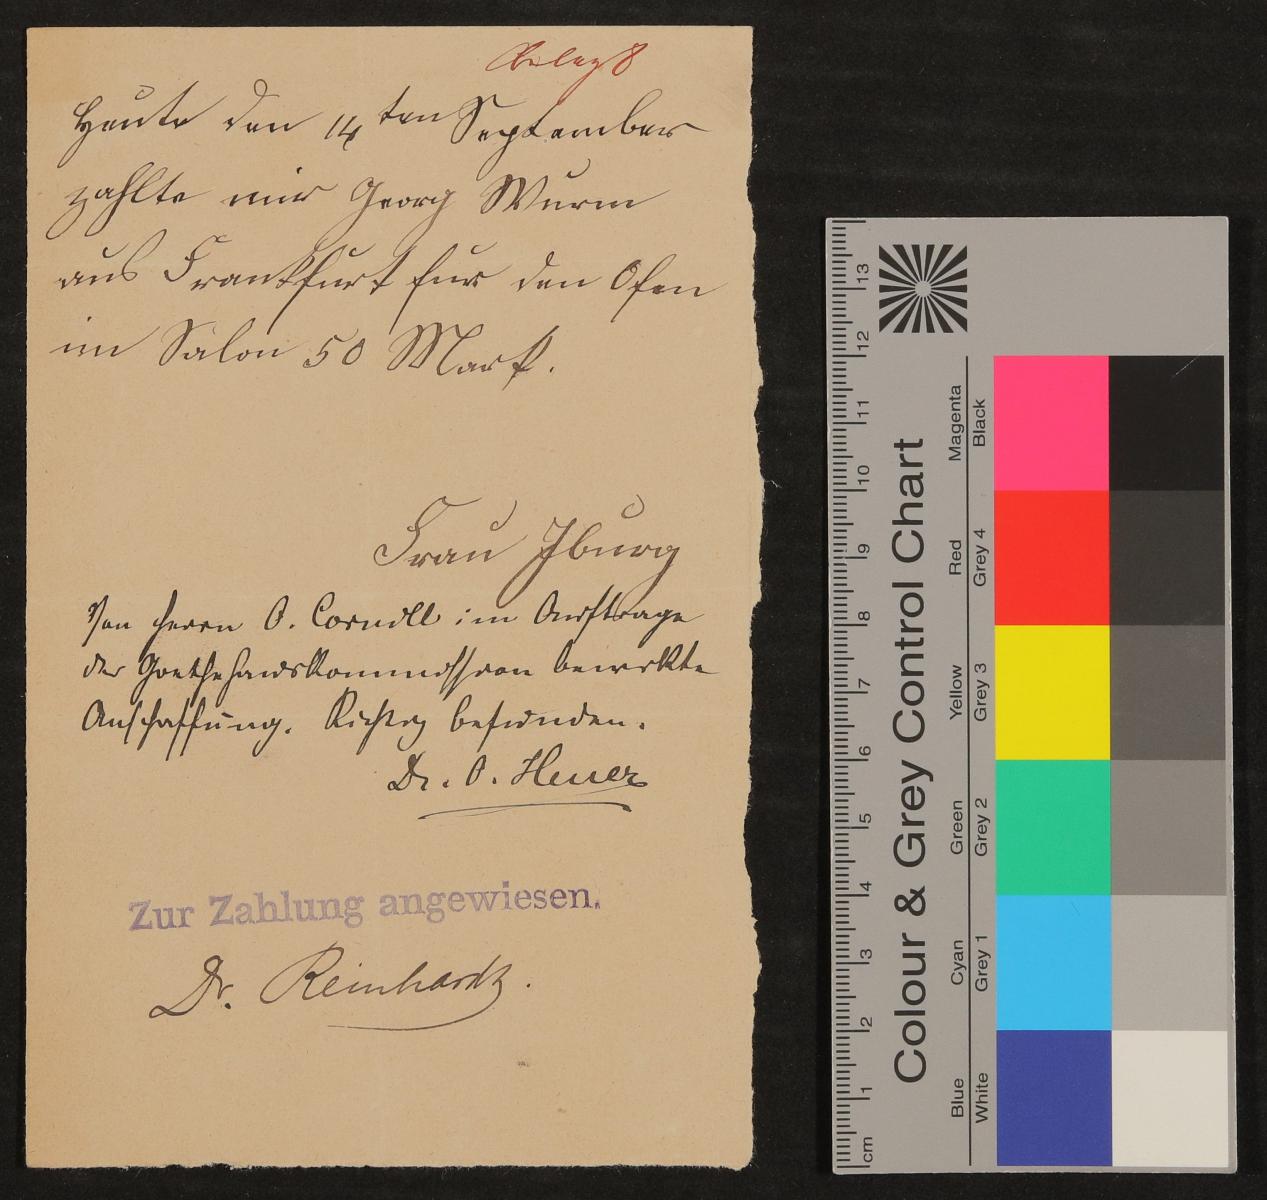 Beleg 8
Heute den 14ten September
zahlte mir Georg Wurm
aus Frankfurt für den Ofen
im Salon 50 Mark.
Frau Iburg
Von Herrn O. Cornill im Auftrage
der Goethehauskommission bewirkte
Anschaffung. Richtig befunden.
Dr. O. Heuer
Zur Zahlung angewiesen.
Dr. Reinhardt.
Colour & Grey Control Chart
Magenta
Black
Red
Grey 4
Yellow
Grey 3
Green
Grey 2
Cyan
Grey 1
Blue
White
13
12
11
10
9
8
7
6
5
4
3
2
1
cm